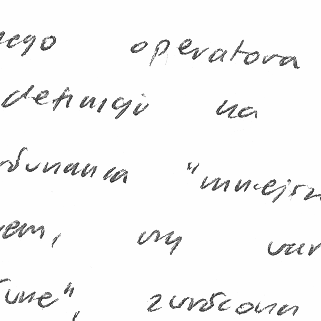 nego operatora
definicji na
równania "mniejsz
wem, my war
une", zwrócona